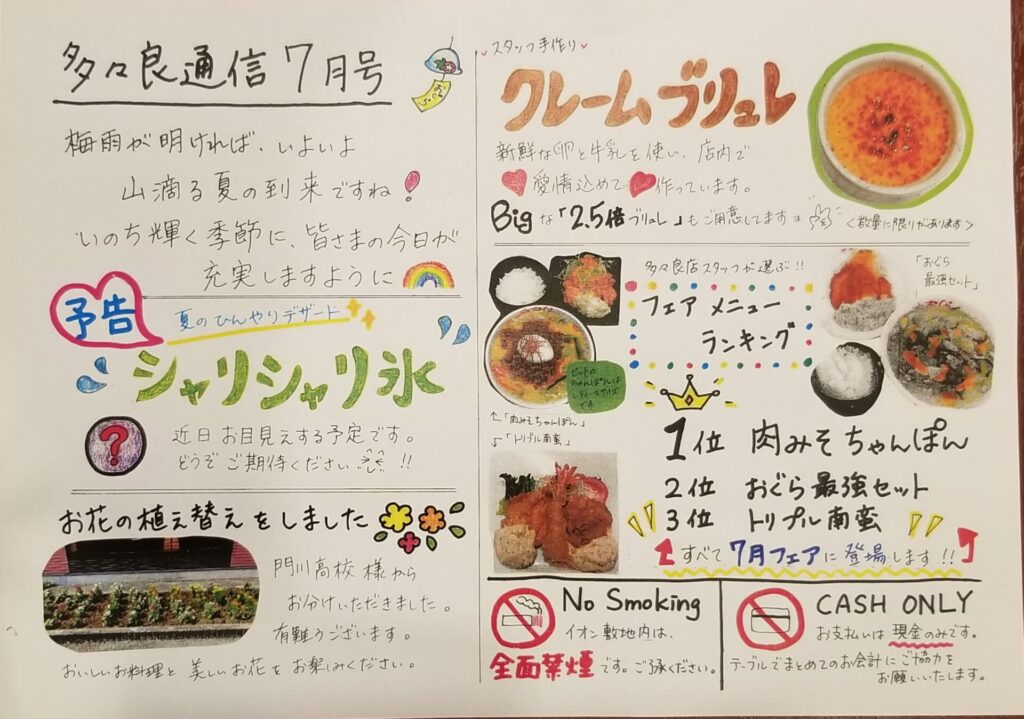 多々良通信7月号
梅雨が明ければ、いよいよ
山滴る夏の到来ですね！
いのち輝く季節に、皆さまの今日が
充実しますように
予告
夏のひんやりデザート
シャリシャリ氷
?
近日お目見えする予定です。
どうぞご期待ください !!
お花の植え替えをしました
門川高校様から
お分けいただきました。
有難うございます。
おいしいお料理と美しいお花をお楽しみください。
スタッフ手作り
クレームブリュレ
新鮮な卵と牛乳を使い、店内で
愛情込めて作っています。
Bigな「2.5倍ブリュレ」もご用意してますョ
＜数量に限りがあります＞
多々良店スタッフが選ぶ!!
フェアメニュー
ランキング
「おぐら
最強セット」
セットの
ちゃんぽんは
レディースサイズ
です
↑「肉みそちゃんぽん」
「トリプル南蛮」
1位 肉みそちゃんぽん
2位 おぐら最強セット
3位 トリプル南蛮
すべて7月フェアに登場します!!
No Smoking
イオン敷地内は、
全面禁煙です。ご了承ください。
CASH ONLY
お支払いは現金のみです。
テーブルでまとめてのお会計にご協力を
お願いいたします。